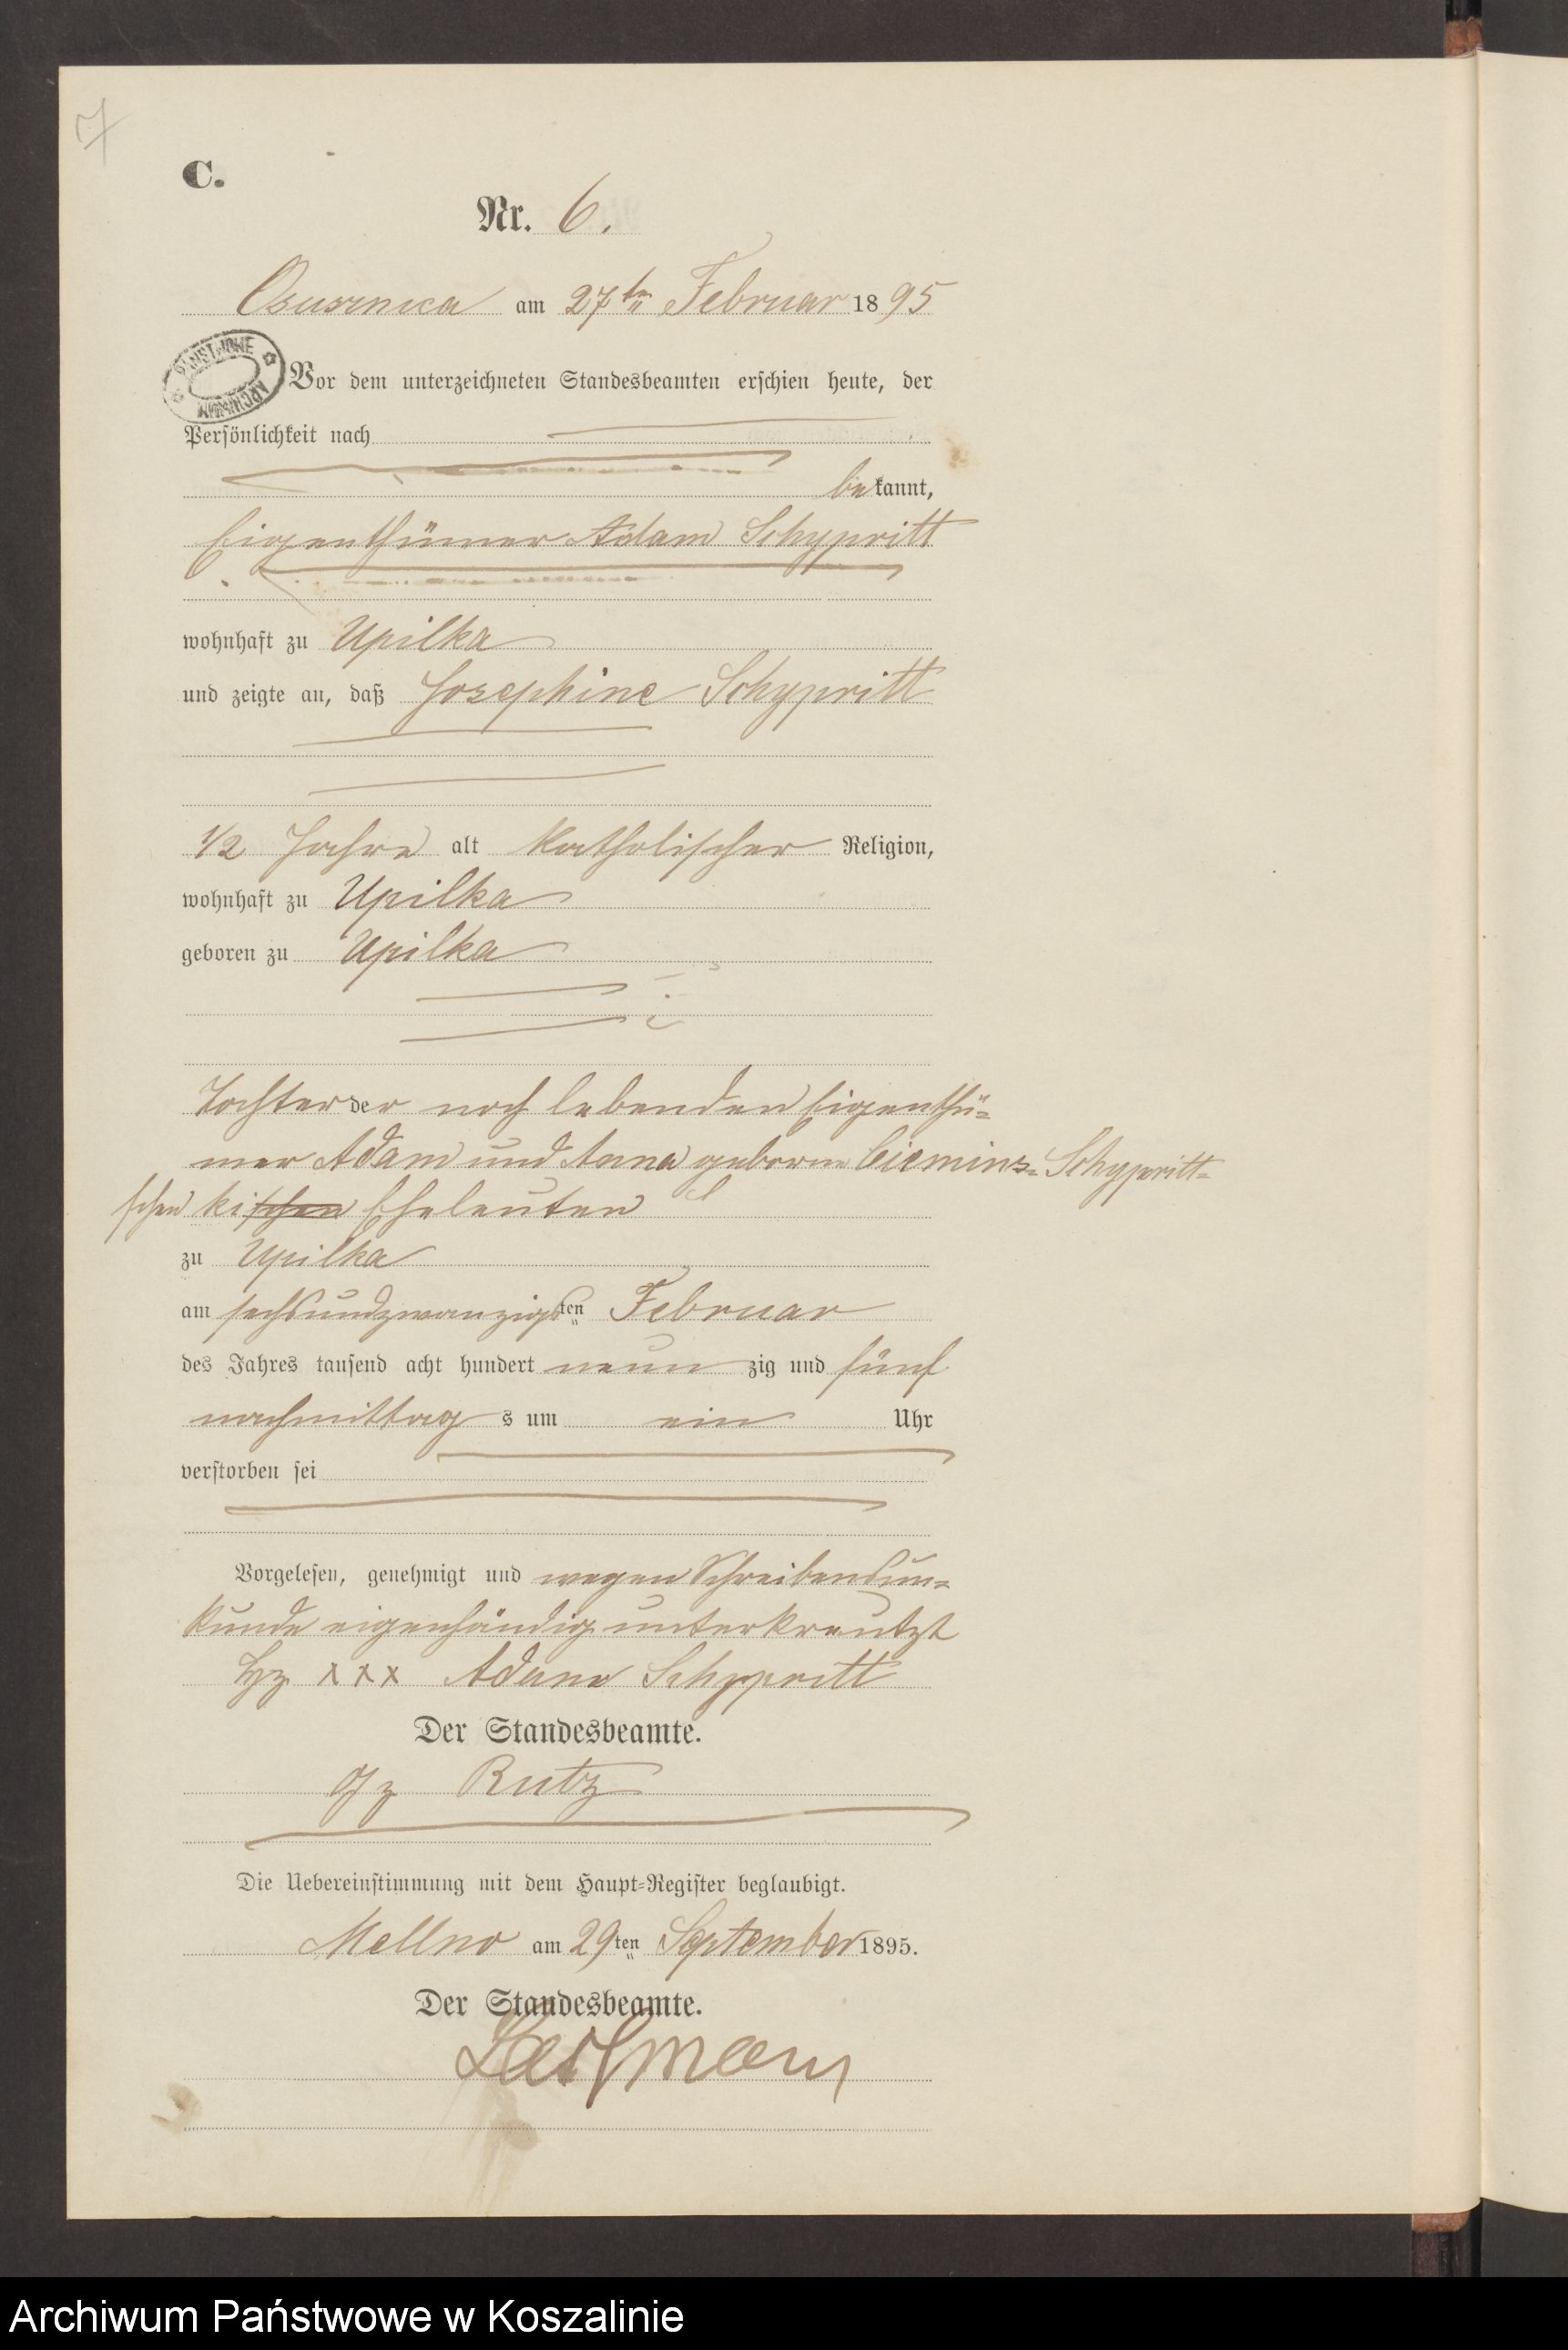 7
C.
Nr. 6.
Ossusznica am 27ten Februar 1895
PAŃSTWOWE ARCHIWUM
Vor dem unterzeichneten Standesbeamten erschien heute, der
Persönlichkeit nach
bekannt,
Eigenthümer Adam Schypritt
wohnhaft zu Upilka
und zeigte an, daß Josephine Schypritt
1/2 Jahre alt katholischer Religion,
wohnhaft zu Upilka
geboren zu Upilka
Tochter der noch lebenden Eigenthü=
mer Adam und Anna geborne Cieminz= Schypritt=
schen kischen Eheleuten
zu Upilka
am sechsundzwanzigsten Februar
des Jahres tausend acht hundert neunzig und fünf
nachmittags um ein Uhr
verstorben sei
Vorgelesen, genehmigt und wegen Schreibensun=
kunde eigenhändig unterkreutzt
Hz xxx Adam Schypritt
Der Standesbeamte.
gz Rutz
Die Uebereinstimmung mit dem Haupt=Register beglaubigt.
Mellno am 29ten September 1895.
Der Standesbeamte.
Archiwum Państwowe w Koszalinie